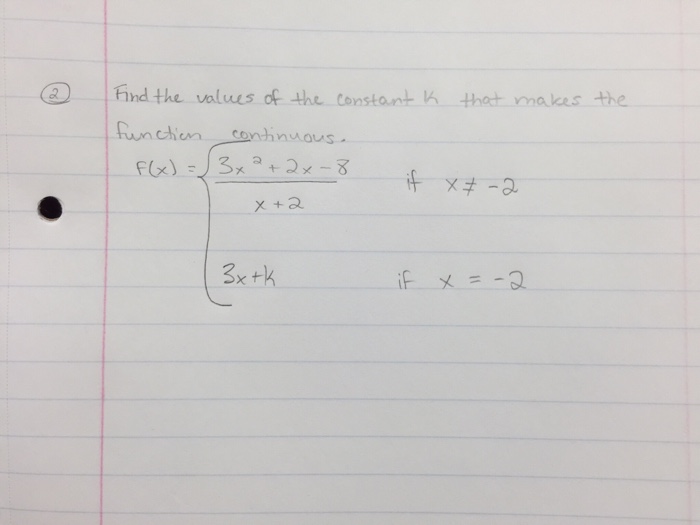 2 Find the values of the constant k that makes the
function continuous.
F(x) = { 3x² + 2x - 8 if x ≠ -2
x + 2
3x + k if x = -2